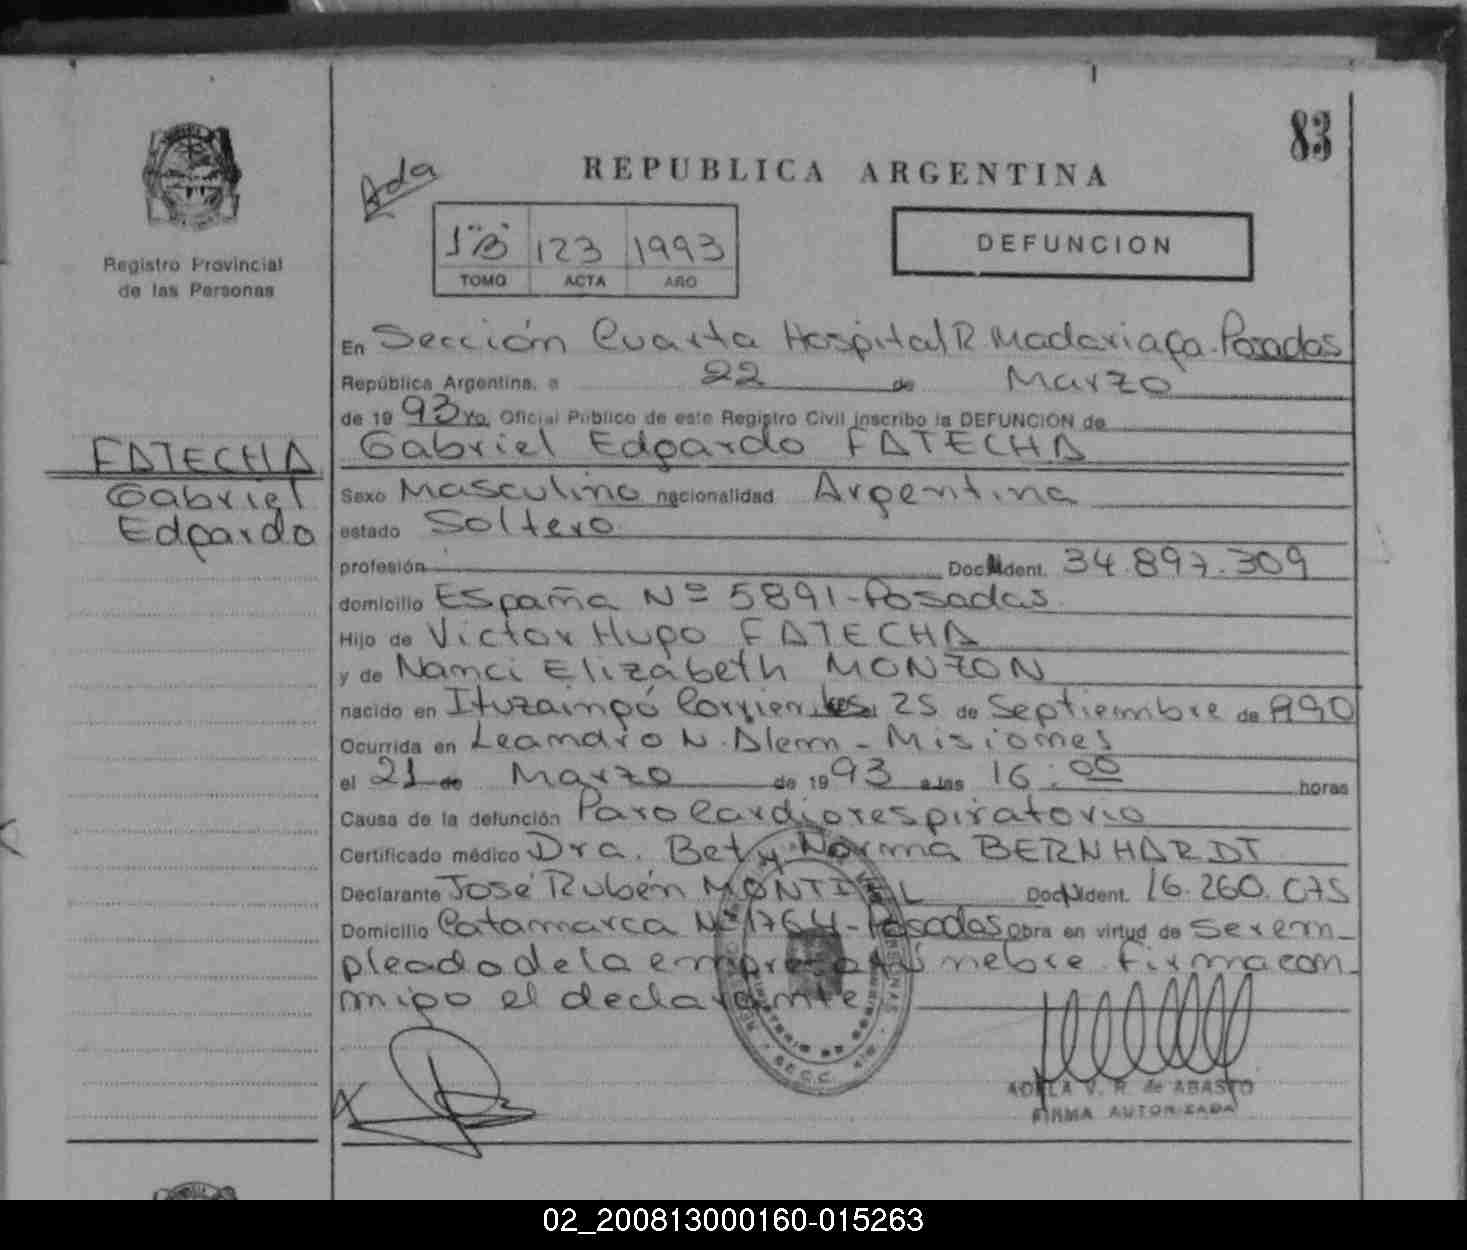 83
REPUBLICA ARGENTINA
Ada
1"B" 123 1993
TOMO ACTA AÑO
DEFUNCION
Registro Provincial
de las Personas
FATECHA
Gabriel
Edgardo
En Sección Cuarta Hospital R Madariaga-Posadas
República Argentina, a 22 de Marzo
de 1993 Yo, Oficial Público de este Registro Civil inscribo la DEFUNCION de
Gabriel Edgardo FATECHA
Sexo Masculino nacionalidad Argentina
estado Soltero
profesión Doc Ident. 34.897.309
domicilio España Nº 5891-Posadas
Hijo de Victor Hugo FATECHA
y de Nanci Elizabeth MONZON
nacido en Ituzaingó Corrientes 25 de Septiembre de 1990
Ocurrida en Leandro N. Alem - Misiones
el 21 de Marzo de 1993 a las 16:00 horas
Causa de la defunción Paro Cardiorespiratorio
Certificado médico Dra. Bety Norma BERNHARDT
Declarante José Rubén MONTIEL Doc Ident. 16.260.075
Domicilio Catamarca Nº 1764-Posadas Obra en virtud de Ser em-
pleado de la empresa fúnebre. firma con-
migo el declarante
ADELA V. R. de ABASTO
FIRMA AUTORIZADA
02_200813000160-015263